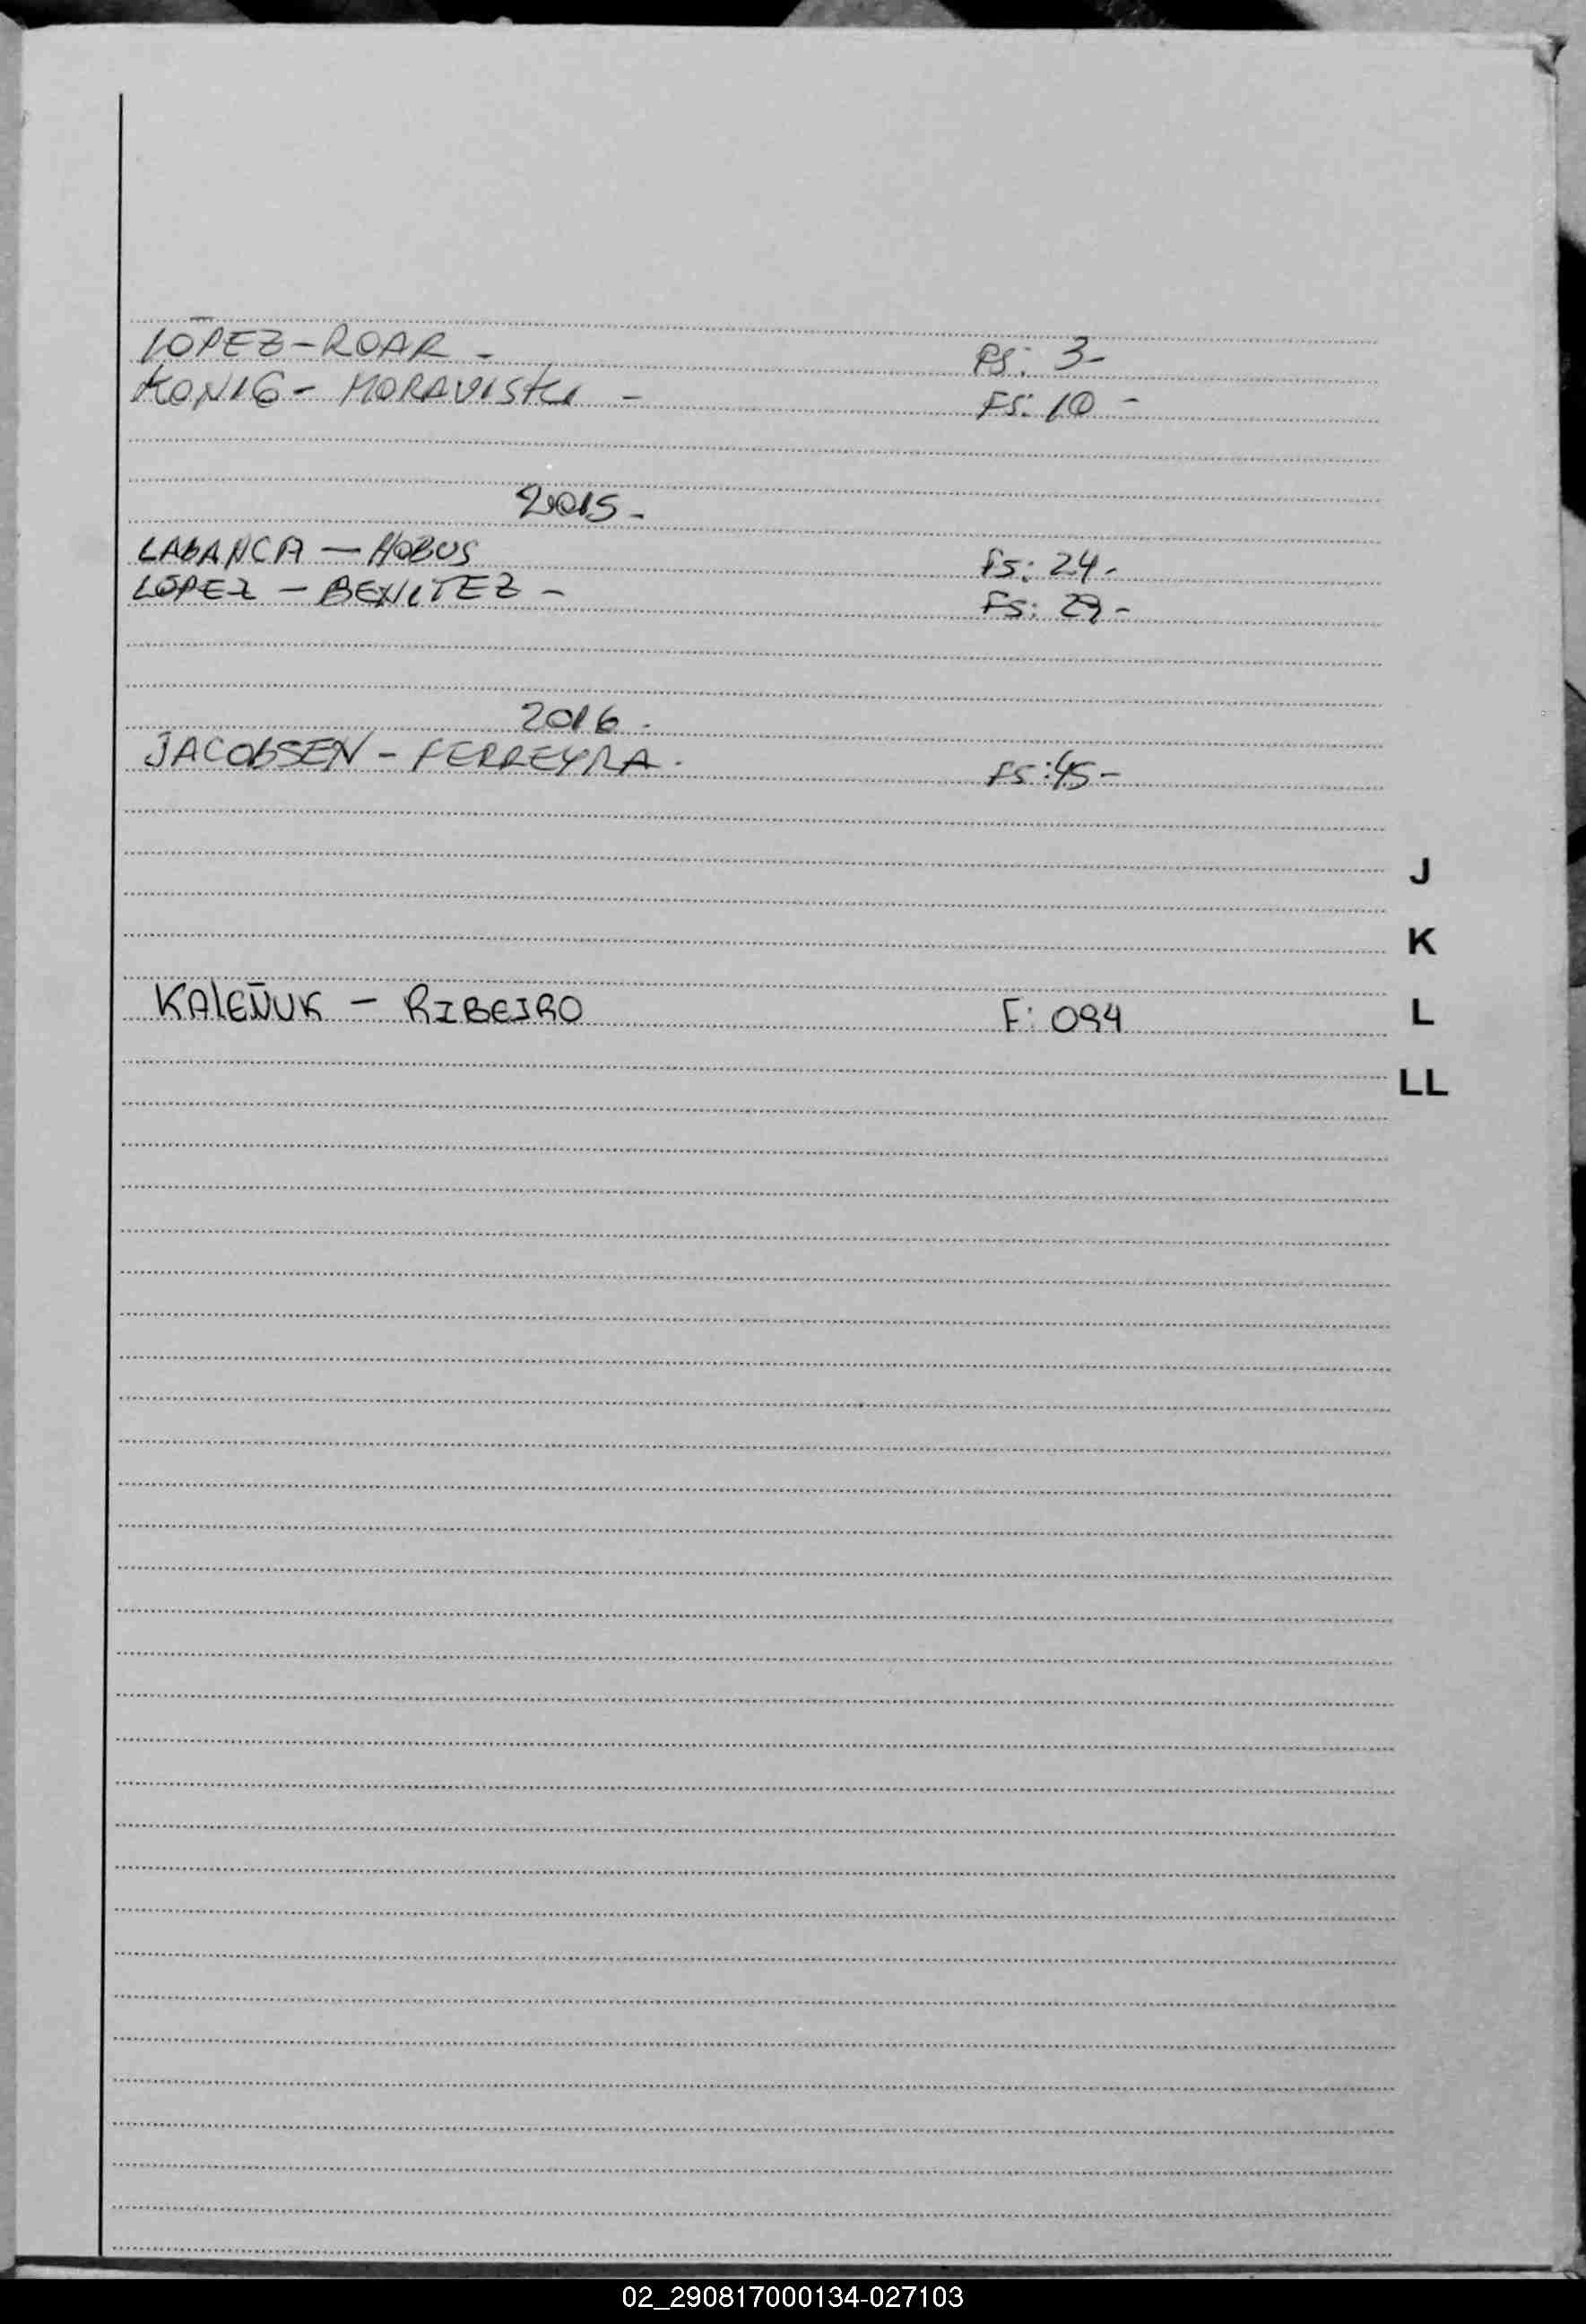 LOPEZ-ROAR - FS: 3-
KONIG - MORAVISKI - FS: 10 -
2015-
LABANCA — HOBUS FS: 24-
LOPEZ - BENITEZ - FS: 29-
2016.
JACOBSEN - FERREYRA. FS: 45-
J
K
KALEÑUK - RIBEIRO F: 094
L
LL
02_290817000134-027103